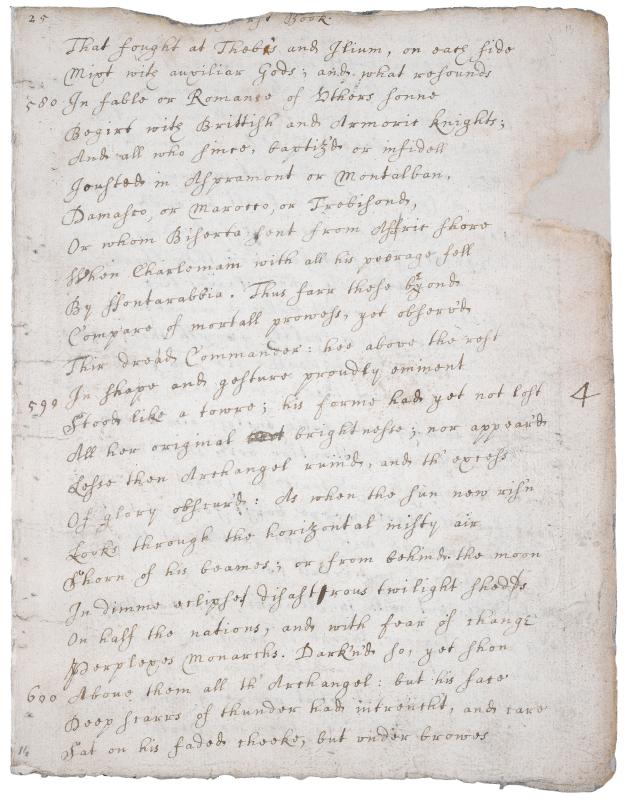 25 First Book.
That fought at Theb's and Ilium, on each side
Mixt with auxiliar Gods; and what resounds
580 In fable or Romance of Uthers sonne
Begirt with Brittish and Armoric knights;
And all who since, baptiz'd or infidell
Jousted in Aspramont or Montalban,
Damasco, or Marocco, or Trebisond,
Or whom Biserta sent from Affric shore
When Charlemain with all his peerage fell
By ffontarabbia. Thus farr these byond
Compare of mortall prowess, yet observ'd
Thir dread Commander: hee above the rest
590 In shape and gesture proudly eminent
Stood like a towre; his forme had yet not lost
4
All her original brightnesse; nor appear'd
Lesse then Archangel ruin'd, and th' excess
Of glory obscur'd: As when the sun new ris'n
Looks through the horizontal misty air
Shorn of his beames; or from behind the moon
In dimme eclipse disastrous twilight shedds
On half the nations, and with fear of change
Perplexes Monarchs. Dark'nd so, yet shon
600 Above them all th' Archangel: but his face
Deep scarrs of thunder had intrencht, and care
14 Sat on his faded cheeke, but under browes